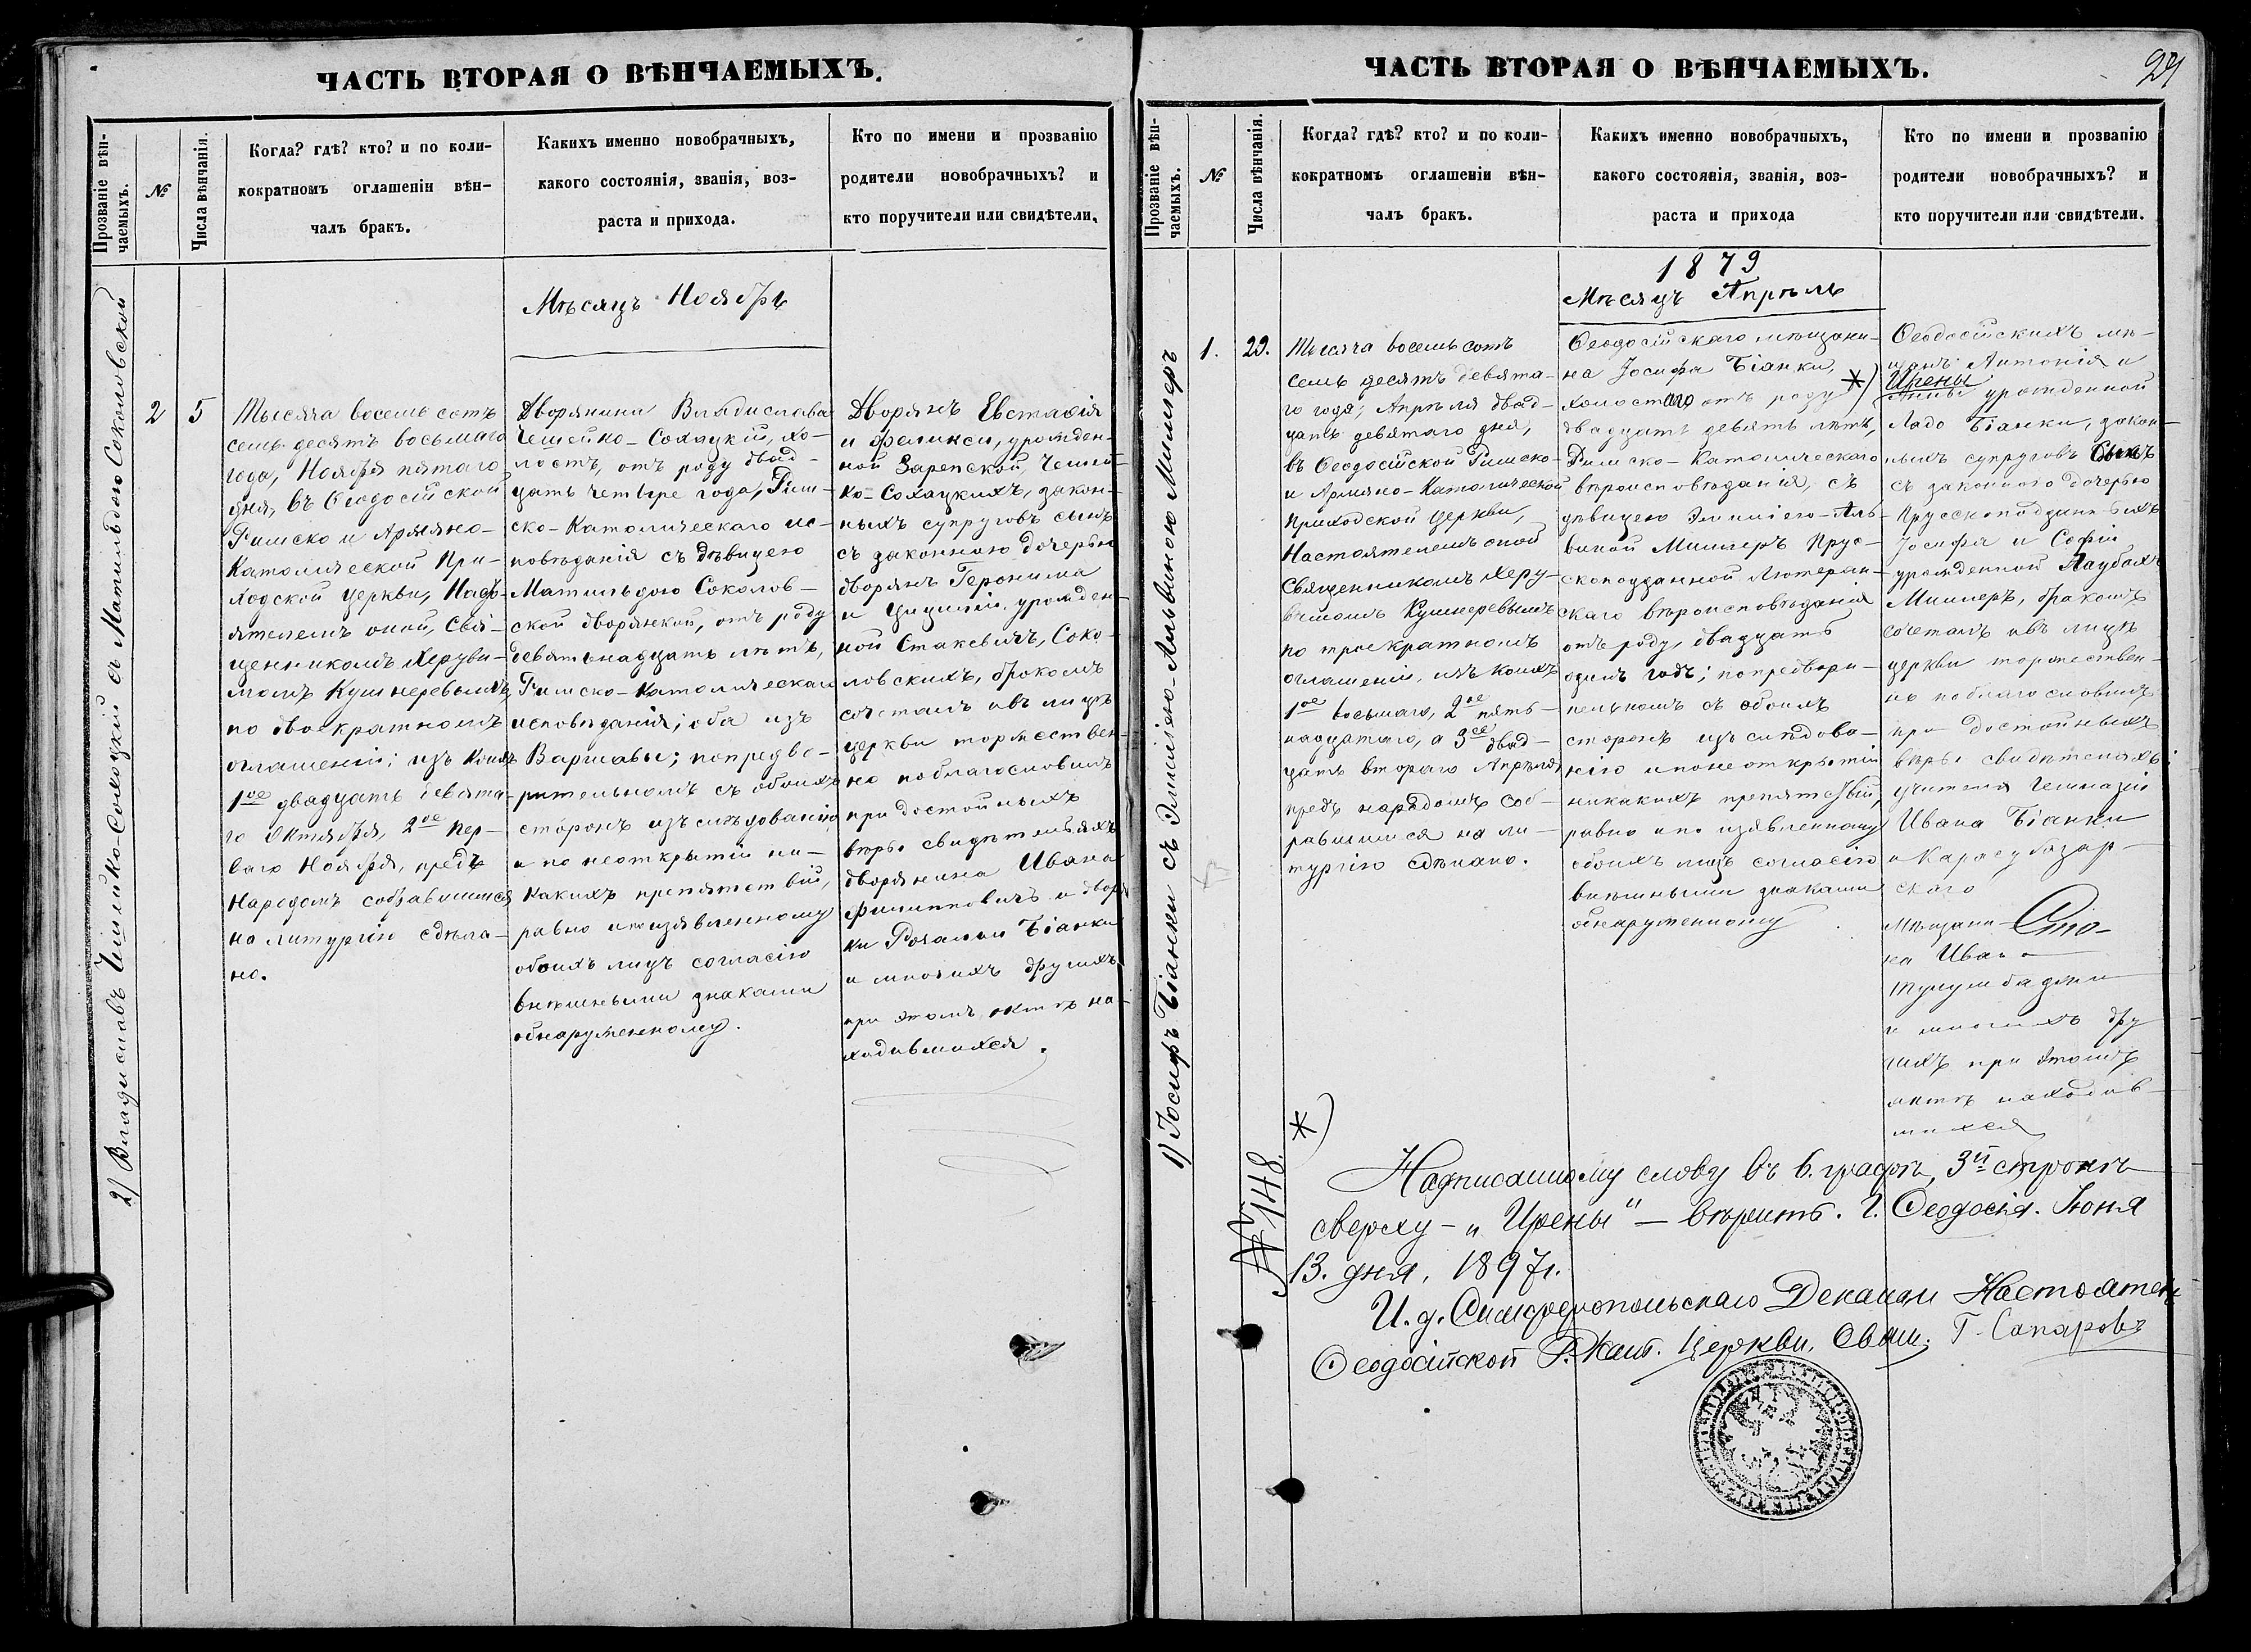 ЧАСТЬ ВТОРАЯ О ВѢНЧАЕМЫХЪ.
Прозваніе вѣн-
чаемыхъ.
№
Числа вѣнчанія.
Когда? гдѣ? кто? и по коли-
кократномъ оглашеніи вѣн-
чалъ бракъ.
Какихъ именно новобрачныхъ,
какого состоянія, званія, воз-
раста и прихода.
Кто по имени и прозванію
родители новобрачныхъ? и
кто поручители или свидѣтели.
Мѣсяцъ Ноябрь
2) Владиславъ Чешейко-Сохацкій съ Матильдою Соколовской
2
5
Тысяча восемь сотъ
семь десятъ восьмаго
года, Ноября пятаго
дня, въ Ѳеодосійской
Римско и Армяно-
Католической При-
ходской церкви, Насто-
ятелемъ оной, Свя-
щенникомъ Херуви-
момъ Кушнеревымъ,
по двоекратномъ
оглашеніи; изъ коихъ
1ое двадцать девята-
го Октября, 2ое пер-
ваго Ноября, предъ
народомъ собравшимся
на литургію сдѣла-
но.
Дворянина Владислава
Чешейко-Сохацкій, хо-
лостъ, отъ роду двад-
цать четыре года, Рим-
ско-Католическаго ис-
повѣданія съ дѣвицею
Матильдою Соколов-
ской дворянкой, отъ роду
девятьнадцать лѣтъ,
Римско-Католическаго
исповѣданія; оба изъ
Варшавы; попредва-
рительномъ съ обоихъ
сторонъ изъслѣдованію
и по неоткрытіи ни-
какихъ препятствій,
равно и поизявленному
обоихъ лицъ согласію
внѣшными знаками
обнаруженному.
Дворянъ Евстафія
и Феликси, урожден-
ной Зарепской, Чешей-
ко-Сохацкихъ, закон-
ныхъ супруговъ сынъ
съ законною дочерью
дворянъ Геронима
и Цициліи, урожден-
ной Стакевичъ, Соко-
ловскихъ, бракомъ
сочеталъ ивъ лицѣ
церкви торжествен-
но поблагословилъ
при достойныхъ
вѣры свидѣтеляхъ
дворянина Ивана
Филипповичъ и дворя
ки Розалии Біанки
и многихъ другихъ
при этомъ актѣ на-
ходившихся.
ЧАСТЬ ВТОРАЯ О ВѢНЧАЕМЫХЪ.
Прозваніе вѣн-
чаемыхъ.
№
Числа вѣнчанія.
Когда? гдѣ? кто? и по коли-
кократномъ оглашеніи вѣн-
чалъ бракъ.
Какихъ именно новобрачныхъ,
какого состоянія, званія, воз-
раста и прихода
Кто по имени и прозванію
родители новобрачныхъ? и
кто поручители или свидѣтели.
1879
Мѣсяцъ Апрѣль
1) Іосифъ Біанки съ Эмиліею-Альвиною Миллеръ
1.
29.
Тысяча восемь сотъ
семь десятъ девята-
го года; Апрѣля двад-
цать девятаго дня,
въ Ѳеодосійской Римско-
и Армяно-Католической
приходской церкви,
Настоятелемъ оной
Священникомъ Херу-
вимомъ Кушнеревымъ
по троекратномъ
оглашеніи, изъ коихъ
1ое восьмаго, 2ое пять-
надцатаго, а 3ее двад-
цать втораго Апрѣля,
предъ народомъ соб-
равшимся на ли-
тургію сдѣлано.
Ѳеодосійскаго мѣщани-
на Іосифа Біанки,
холостаго отъ роду *)
двадцать девять лѣтъ,
Римско-Католическаго
вѣроисповѣданія, съ
дѣвицею Эмиліею-Аль-
виной Миллеръ Прус-
скоподданной Лютеран-
скаго вѣроисповѣданія
отъ роду, двадцать
одинъ годъ; попредвари-
тельномъ съ обоихъ
сторонъ изъслѣдова-
нію и понеоткрытіи
никакихъ препятствій,
равно и по изявленному
обоихъ лицъ согласію
внѣшными знаками
обнаруженному
Ѳеодосійскихъ мѣ-
щанъ Антонія и
Ирены
Анны урожденной
Ладо Біанки, закон-
ныхъ супруговъ Сынъ
съ законною дочерью
Прусскоподданныхъ
Іосифа и Софіи
урожденной Лаубахъ
Миллеръ, бракомъ
сочеталъ ивъ лицѣ
церкви торжествен-
но поблагословилъ
при достойныхъ
вѣры свидѣтеляхъ;
учителя Гимназіи
Ивана Біанки
и Карасубазар-
скаго
мѣщани-
на Ивана
и многихъ дру
гихъ при этомъ
актѣ находив-
шихся
№ 148.
*)
Надписанному слову въ 6. графѣ, 3й строкѣ
сверху - „Ирены" - вѣрить. Г. Ѳеодосія. Іюня
13. дня, 1897г.
И. д. Симферопольскаго Декана Настоятель
Ѳеодосійской Р. Кат. Церкви, Свящ. Г. Сапаровъ